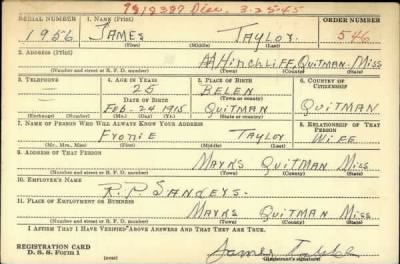 7919387 Disc. 3-25-45
SERIAL NUMBER 1. NAME (Print) ORDER NUMBER
1956 JAMES TAYLOR 546
(First) (Middle) (Last)
2. ADDRESS (Print)
HINCHLIFF, QUITMAN MISS
(Number and street or R. F. D. number) (Town) (County) (State)
3. TELEPHONE 4. AGE IN YEARS 5. PLACE OF BIRTH 6. COUNTRY OF CITIZENSHIP
25 BELEN
DATE OF BIRTH (Town or county)
FEB. 24 1915 QUITMAN QUITMAN
(Exchange) (Number) (Mo.) (Day) (Yr.) (State or country)
7. NAME OF PERSON WHO WILL ALWAYS KNOW YOUR ADDRESS 8. RELATIONSHIP OF THAT PERSON
FYONIE TAYLOR WIFE
(Mr., Mrs., Miss) (First) (Middle) (Last)
9. ADDRESS OF THAT PERSON
MARKS QUITMAN MISS
(Number and street or R. F. D. number) (Town) (County) (State)
10. EMPLOYER'S NAME
R.P. SANDERS.
11. PLACE OF EMPLOYMENT OR BUSINESS
MARKS QUITMAN MISS
(Number and street or R. F. D. number) (Town) (County) (State)
I AFFIRM THAT I HAVE VERIFIED ABOVE ANSWERS AND THAT THEY ARE TRUE.
REGISTRATION CARD
D. S. S. Form 1 (over) James (Registrant's signature)